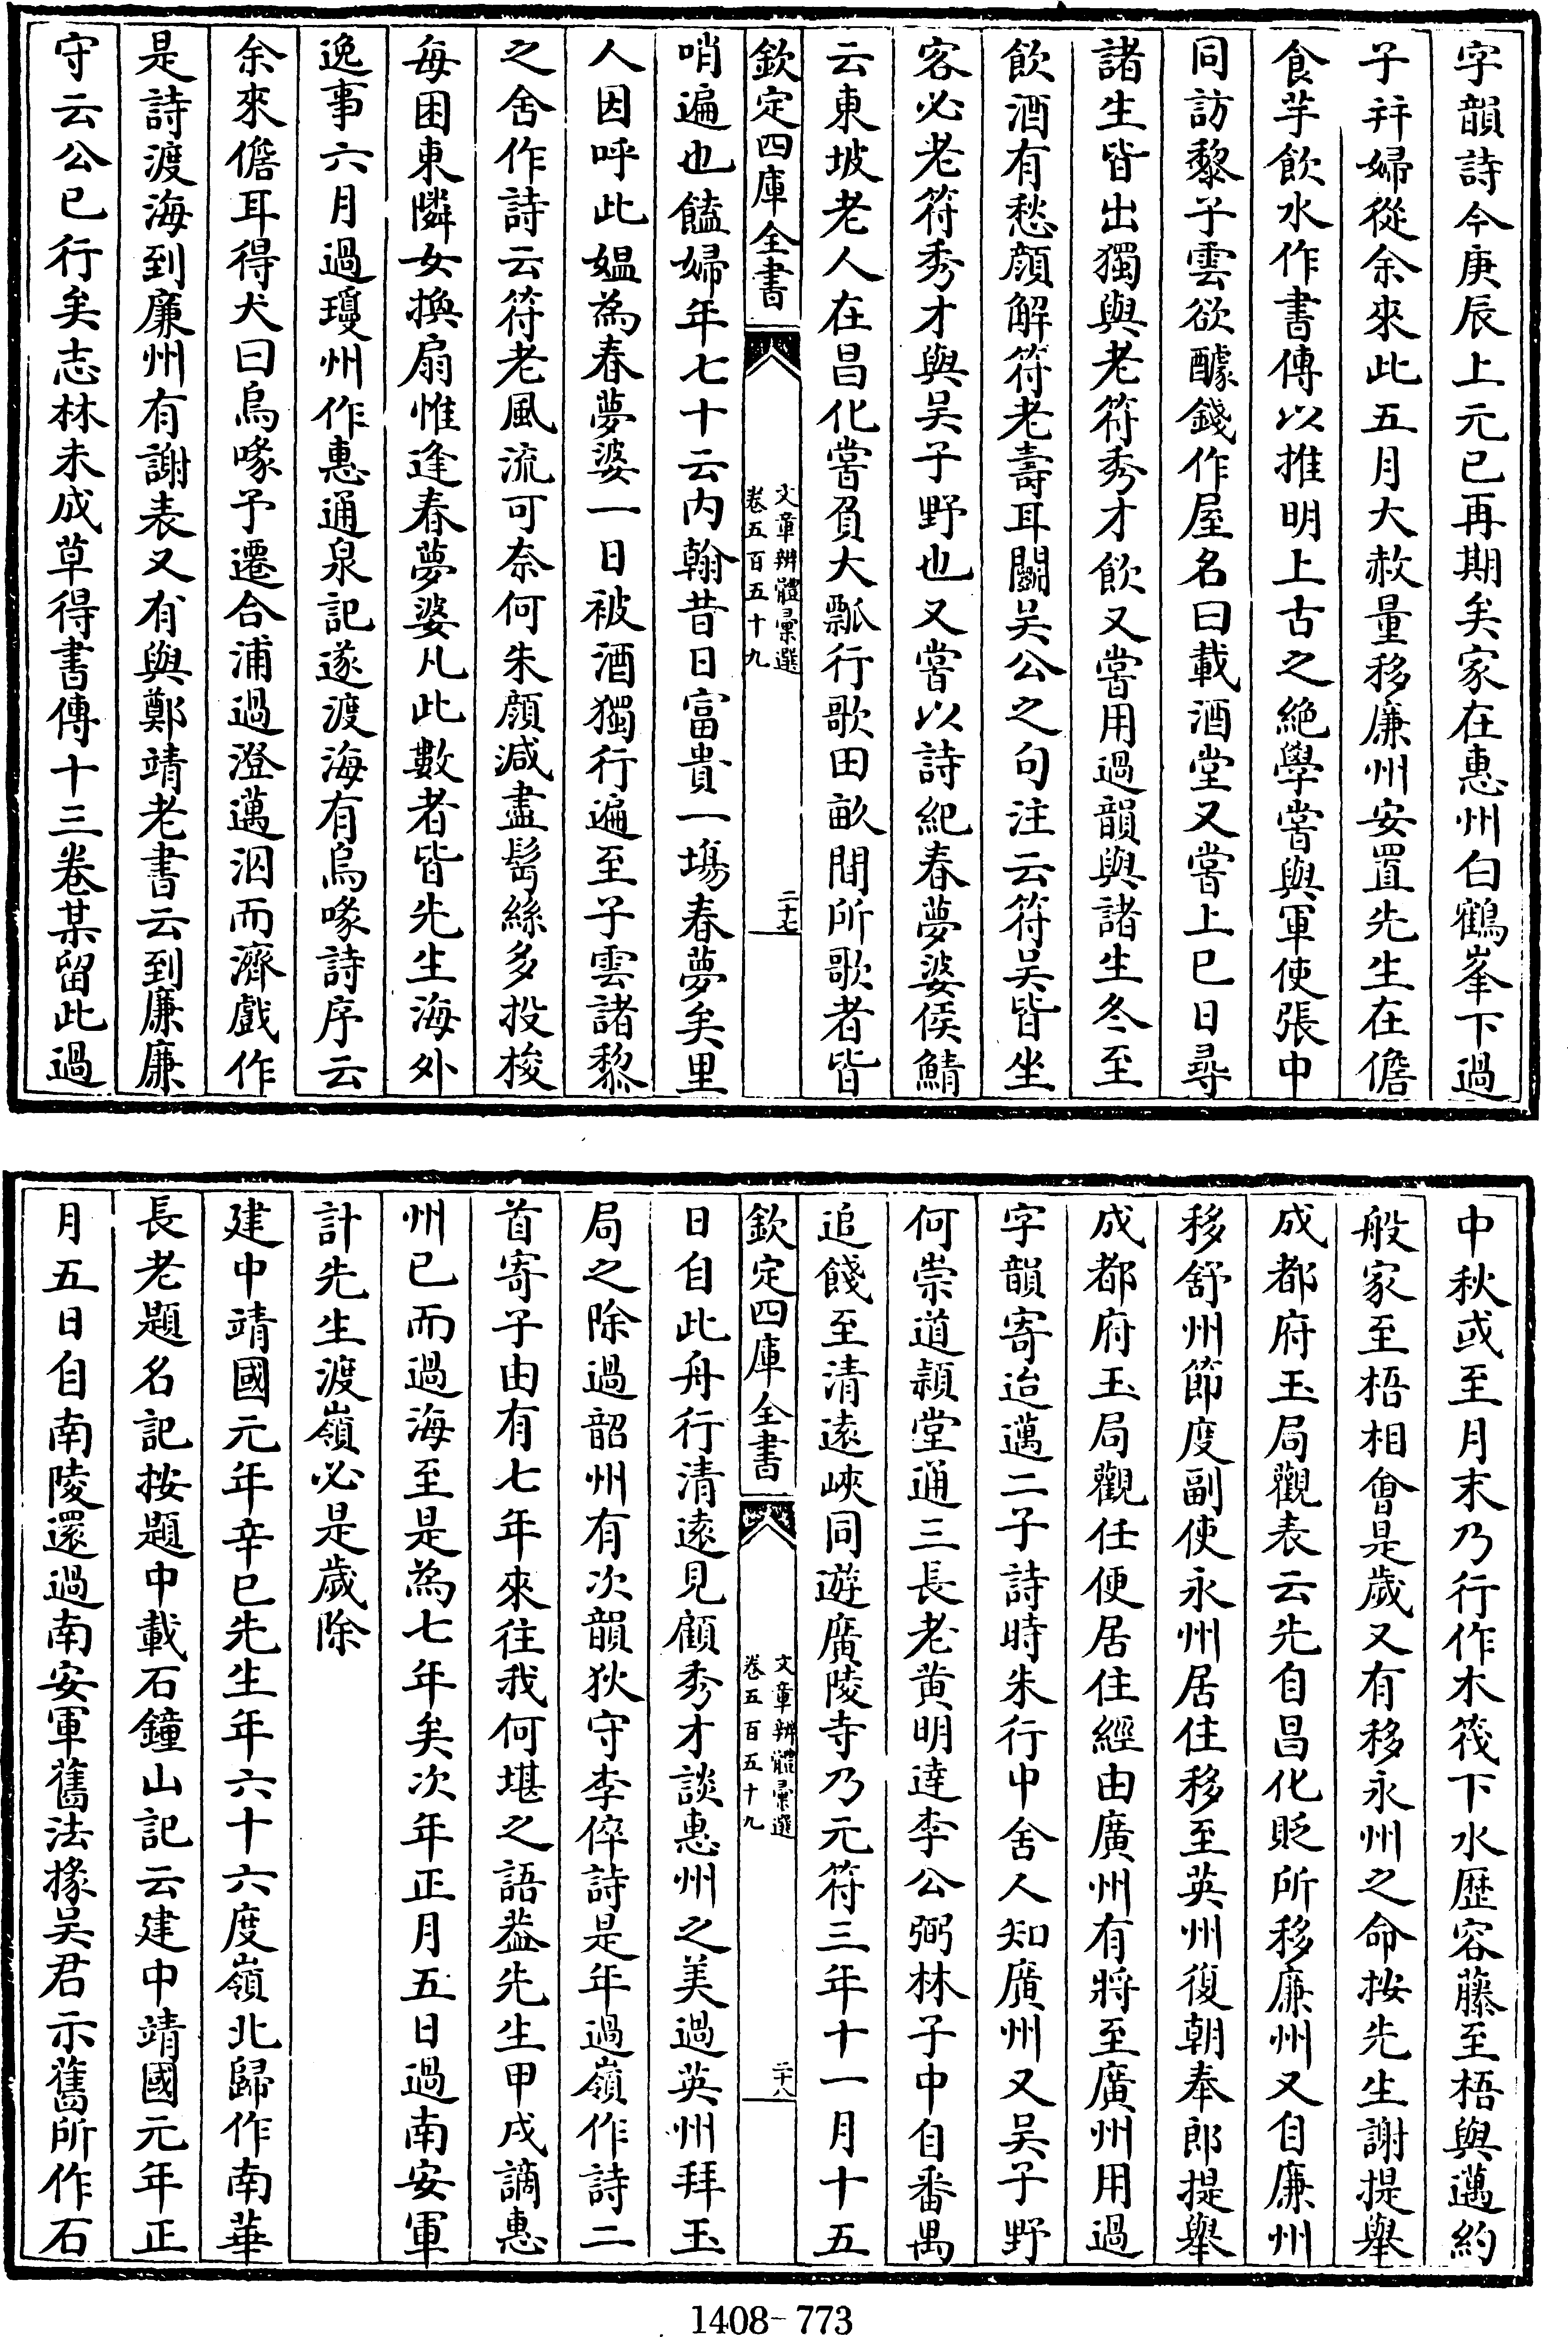 字韻詩今庚辰上元已再期矣家在惠州白鶴峯下過
子幷婦從余來此五月大赦量移廉州安置先生在儋
食芋飲水作書傳以推明上古之絶學嘗與軍使張中
同訪黎子雲欲醵錢作屋名曰載酒堂又嘗上巳日尋
諸生皆出獨與老符秀才飲又嘗用過韻與諸生冬至
飲酒有愁顔解符老壽耳鬭吴公之句注云符吴皆坐
客必老符秀才與吴子野也又嘗以詩紀春夢婆侯鯖
云東坡老人在昌化嘗負大瓢行歌田畝間所歌者皆
欽定四庫全書
文章辨體彚選
卷五百五十九
二十七
哨遍也饁婦年七十云内翰昔日富貴一塲春夢矣里
人因呼此媪為春夢婆一日被酒獨行遍至子雲諸黎
之舍作詩云符老風流可奈何朱顔減盡鬂絲多投梭
每困東隣女換扇惟逢春夢婆凡此數者皆先生海外
逸事六月過瓊州作惠通泉記遂渡海有烏喙詩序云
余來儋耳得犬曰烏喙予遷合浦過澄邁泅而濟戲作
是詩渡海到廉州有謝表又有與鄭靖老書云到廉廉
守云公已行矣志林未成草得書傳十三卷某留此過
中秋或至月末乃行作木筏下水歷容藤至梧與邁約
般家至梧相會是歲又有移永州之命按先生謝提舉
成都府玉局觀表云先自昌化貶所移廉州又自廉州
移舒州節度副使永州居住移至英州復朝奉郎提舉
成都府玉局觀任便居住經由廣州有將至廣州用過
字韻寄迨邁二子詩時朱行中舍人知廣州又吴子野
何崇道頴堂通三長老黄明達李公弼林子中自番禺
追餞至清遠峽同遊廣陵寺乃元符三年十一月十五
欽定四庫全書
文章辨體彚選
卷五百五十九
二十八
日自此舟行清遠見顧秀才談惠州之美過英州拜玉
局之除過韶州有次韻狄守李倅詩是年過嶺作詩二
首寄子由有七年來往我何堪之語葢先生甲戌謫惠
州已而過海至是為七年矣次年正月五日過南安軍
計先生渡嶺必是歲除
建中靖國元年辛巳先生年六十六度嶺北歸作南華
長老題名記按題中載石鐘山記云建中靖國元年正
月五日自南陵還過南安軍舊法掾吴君示舊所作石
1408-773